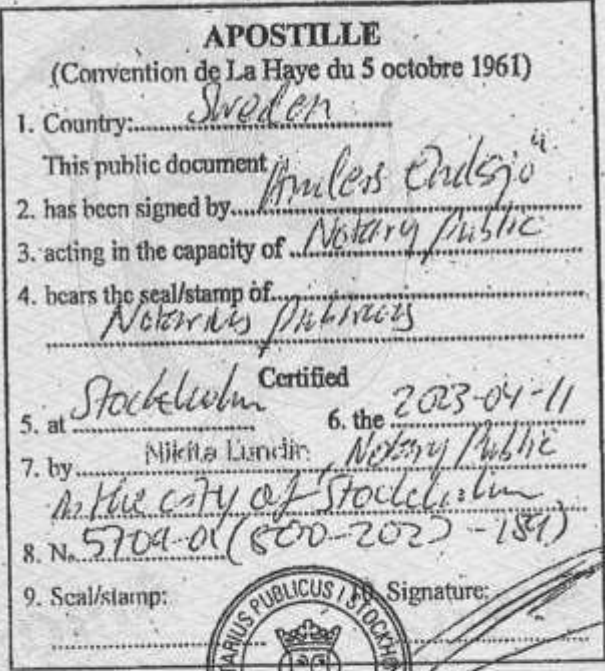 APOSTILLE
(Convention de La Haye du 5 octobre 1961)
1. Country: Sweden
This public document
2. has been signed by
3. acting in the capacity of Notary Public
4. bears the seal/stamp of
Notarius Publicus
Certified
5. at Stockholm 6. the 2023-04-11
7. by Nikita Lundin, Notary Public
in the city of Stockholm
8. No
9. Seal/stamp: 10. Signature:
ARIUS PUBLICUS I STOCKHO